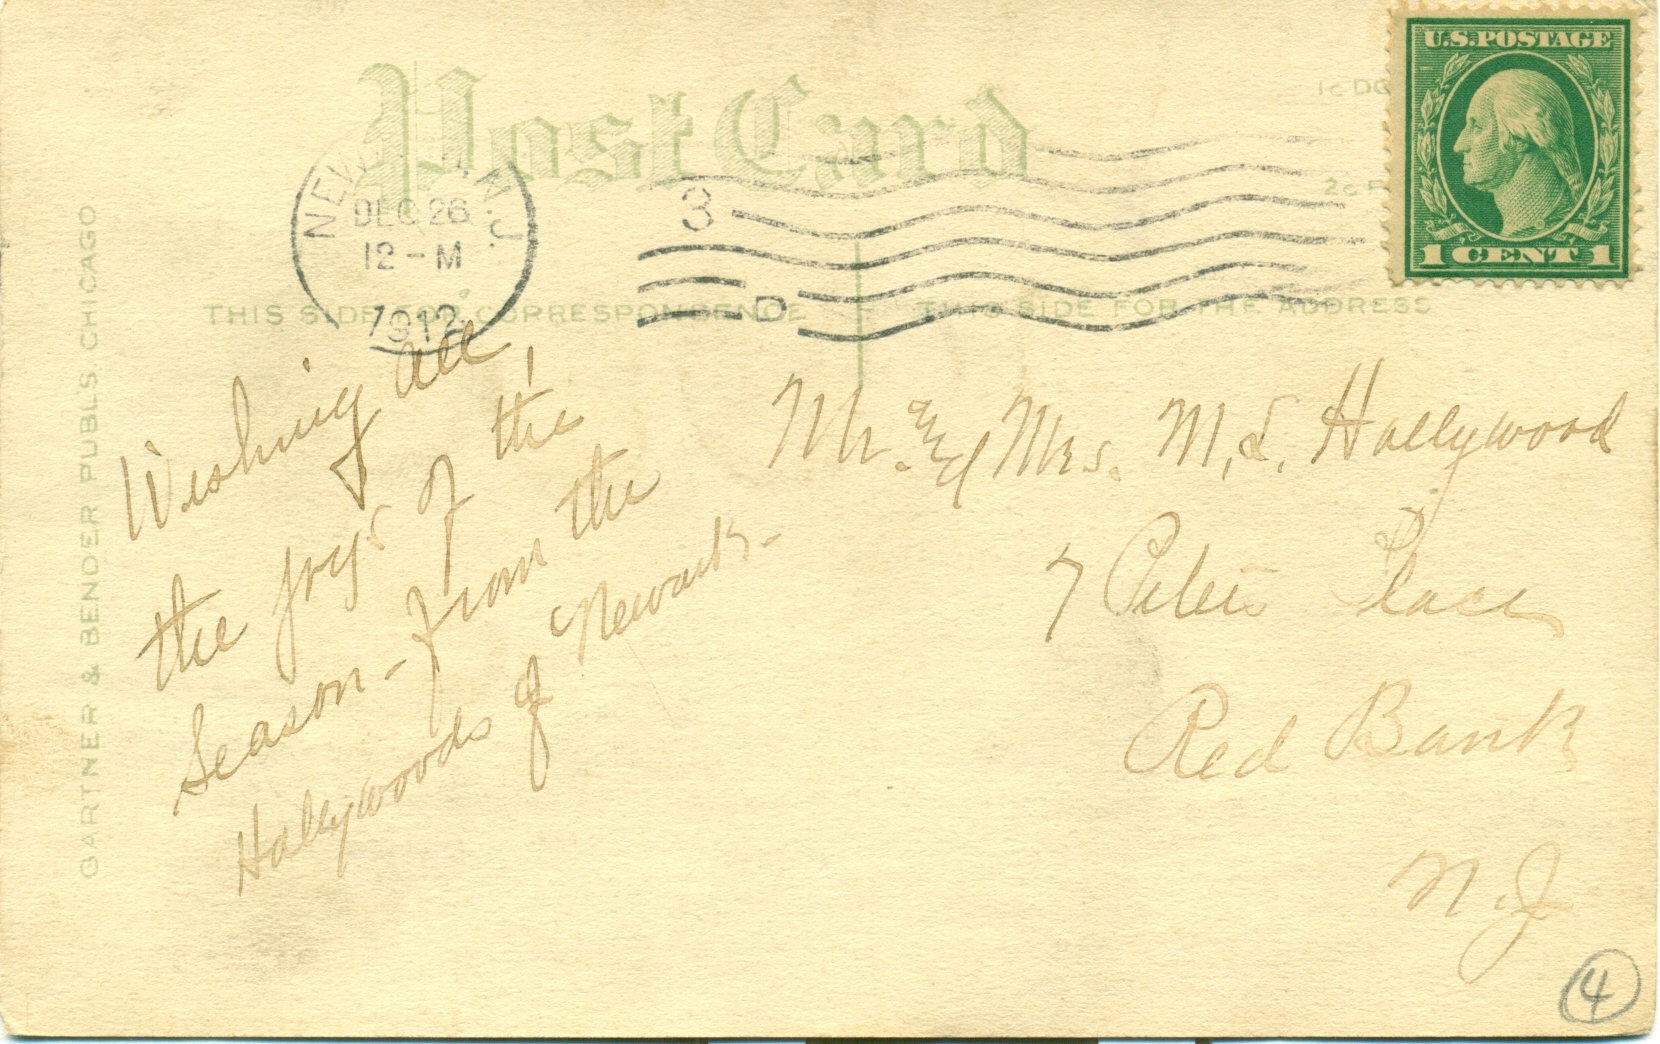 Post Card
U.S. POSTAGE
1 CENT 1
1c
2c
DEC 26
12 - M
1912
N.J.
3
D
THIS SIDE FOR CORRESPONDENCE
THIS SIDE FOR THE ADDRESS
GARTNER & BENDER PUBL'S CHICAGO
Wishing all
the joys of the
Season - from the
Hollywoods of Newark -
Mr. & Mrs. M. S. Hollywood
7 Peters Place
Red Bank
N.J.
4